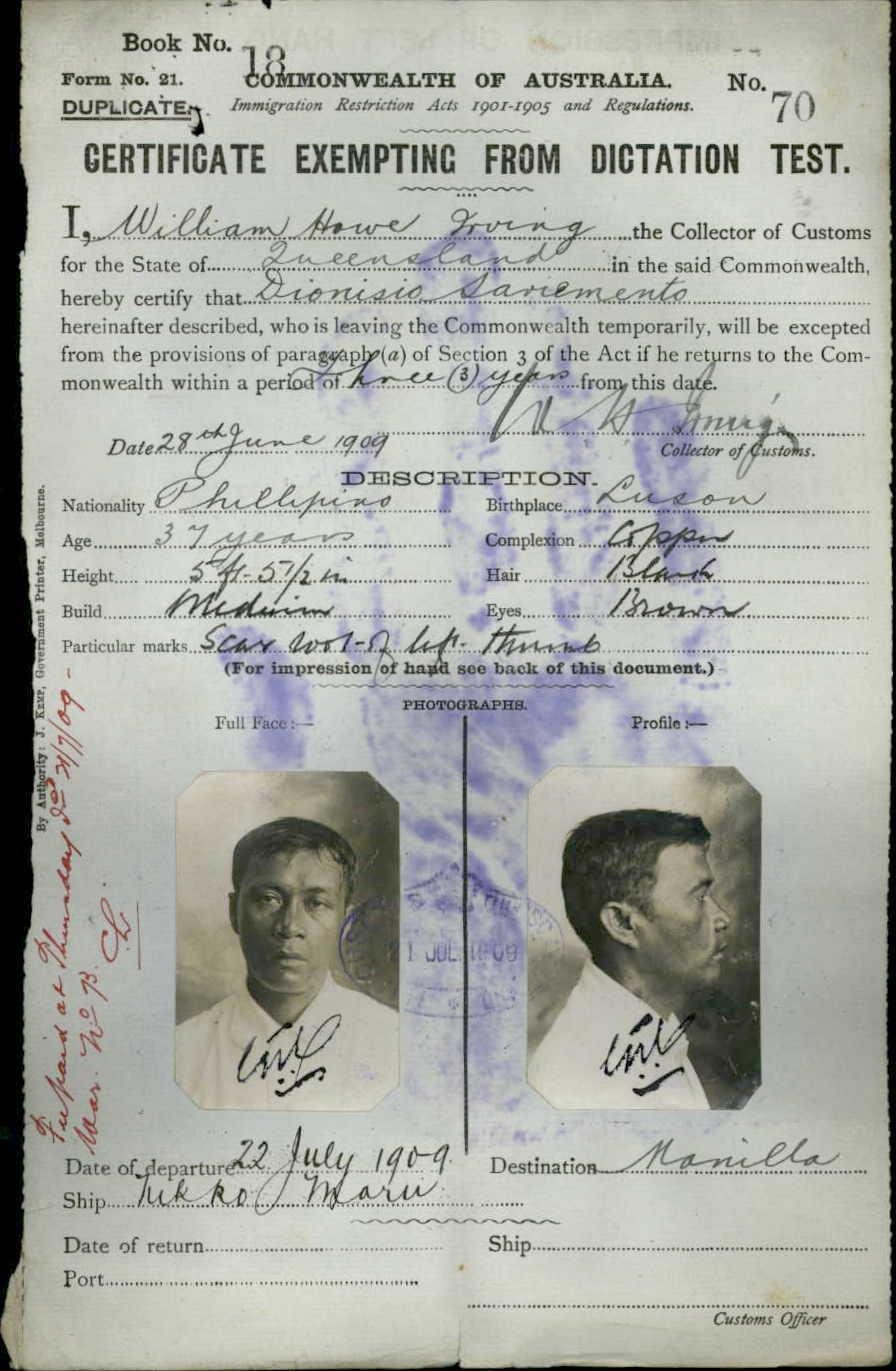 Book No. 18
Form No. 21. COMMONWEALTH OF AUSTRALIA. No. 70
DUPLICATE. Immigration Restriction Acts 1901-1905 and Regulations.
CERTIFICATE EXEMPTING FROM DICTATION TEST.
I, William Howe Irving the Collector of Customs
for the State of Queensland in the said Commonwealth,
hereby certify that Dionisio Sariemento
hereinafter described, who is leaving the Commonwealth temporarily, will be excepted
from the provisions of paragraph (a) of Section 3 of the Act if he returns to the Com-
monwealth within a period of Three (3) years from this date.
W H Irving
Date 28th June 1909 Collector of Customs.
DESCRIPTION.
Nationality Phillipino Birthplace Luzon
Age 37 years Complexion Copper
Height 5 ft - 5 1/2 in Hair Black
Build Medium Eyes Brown
Particular marks Scar root of left thumb
(For impression of hand see back of this document.)
PHOTOGRAPHS.
Full Face :— Profile :—
21 JUL 1909
Date of departure 22 July 1909 Destination Manilla
Ship Nikko Maru
Date of return Ship
Port
Customs Officer
By Authority: J. KEMP, Government Printer, Melbourne.
Fee paid at Thursday Id 21/7/09 -